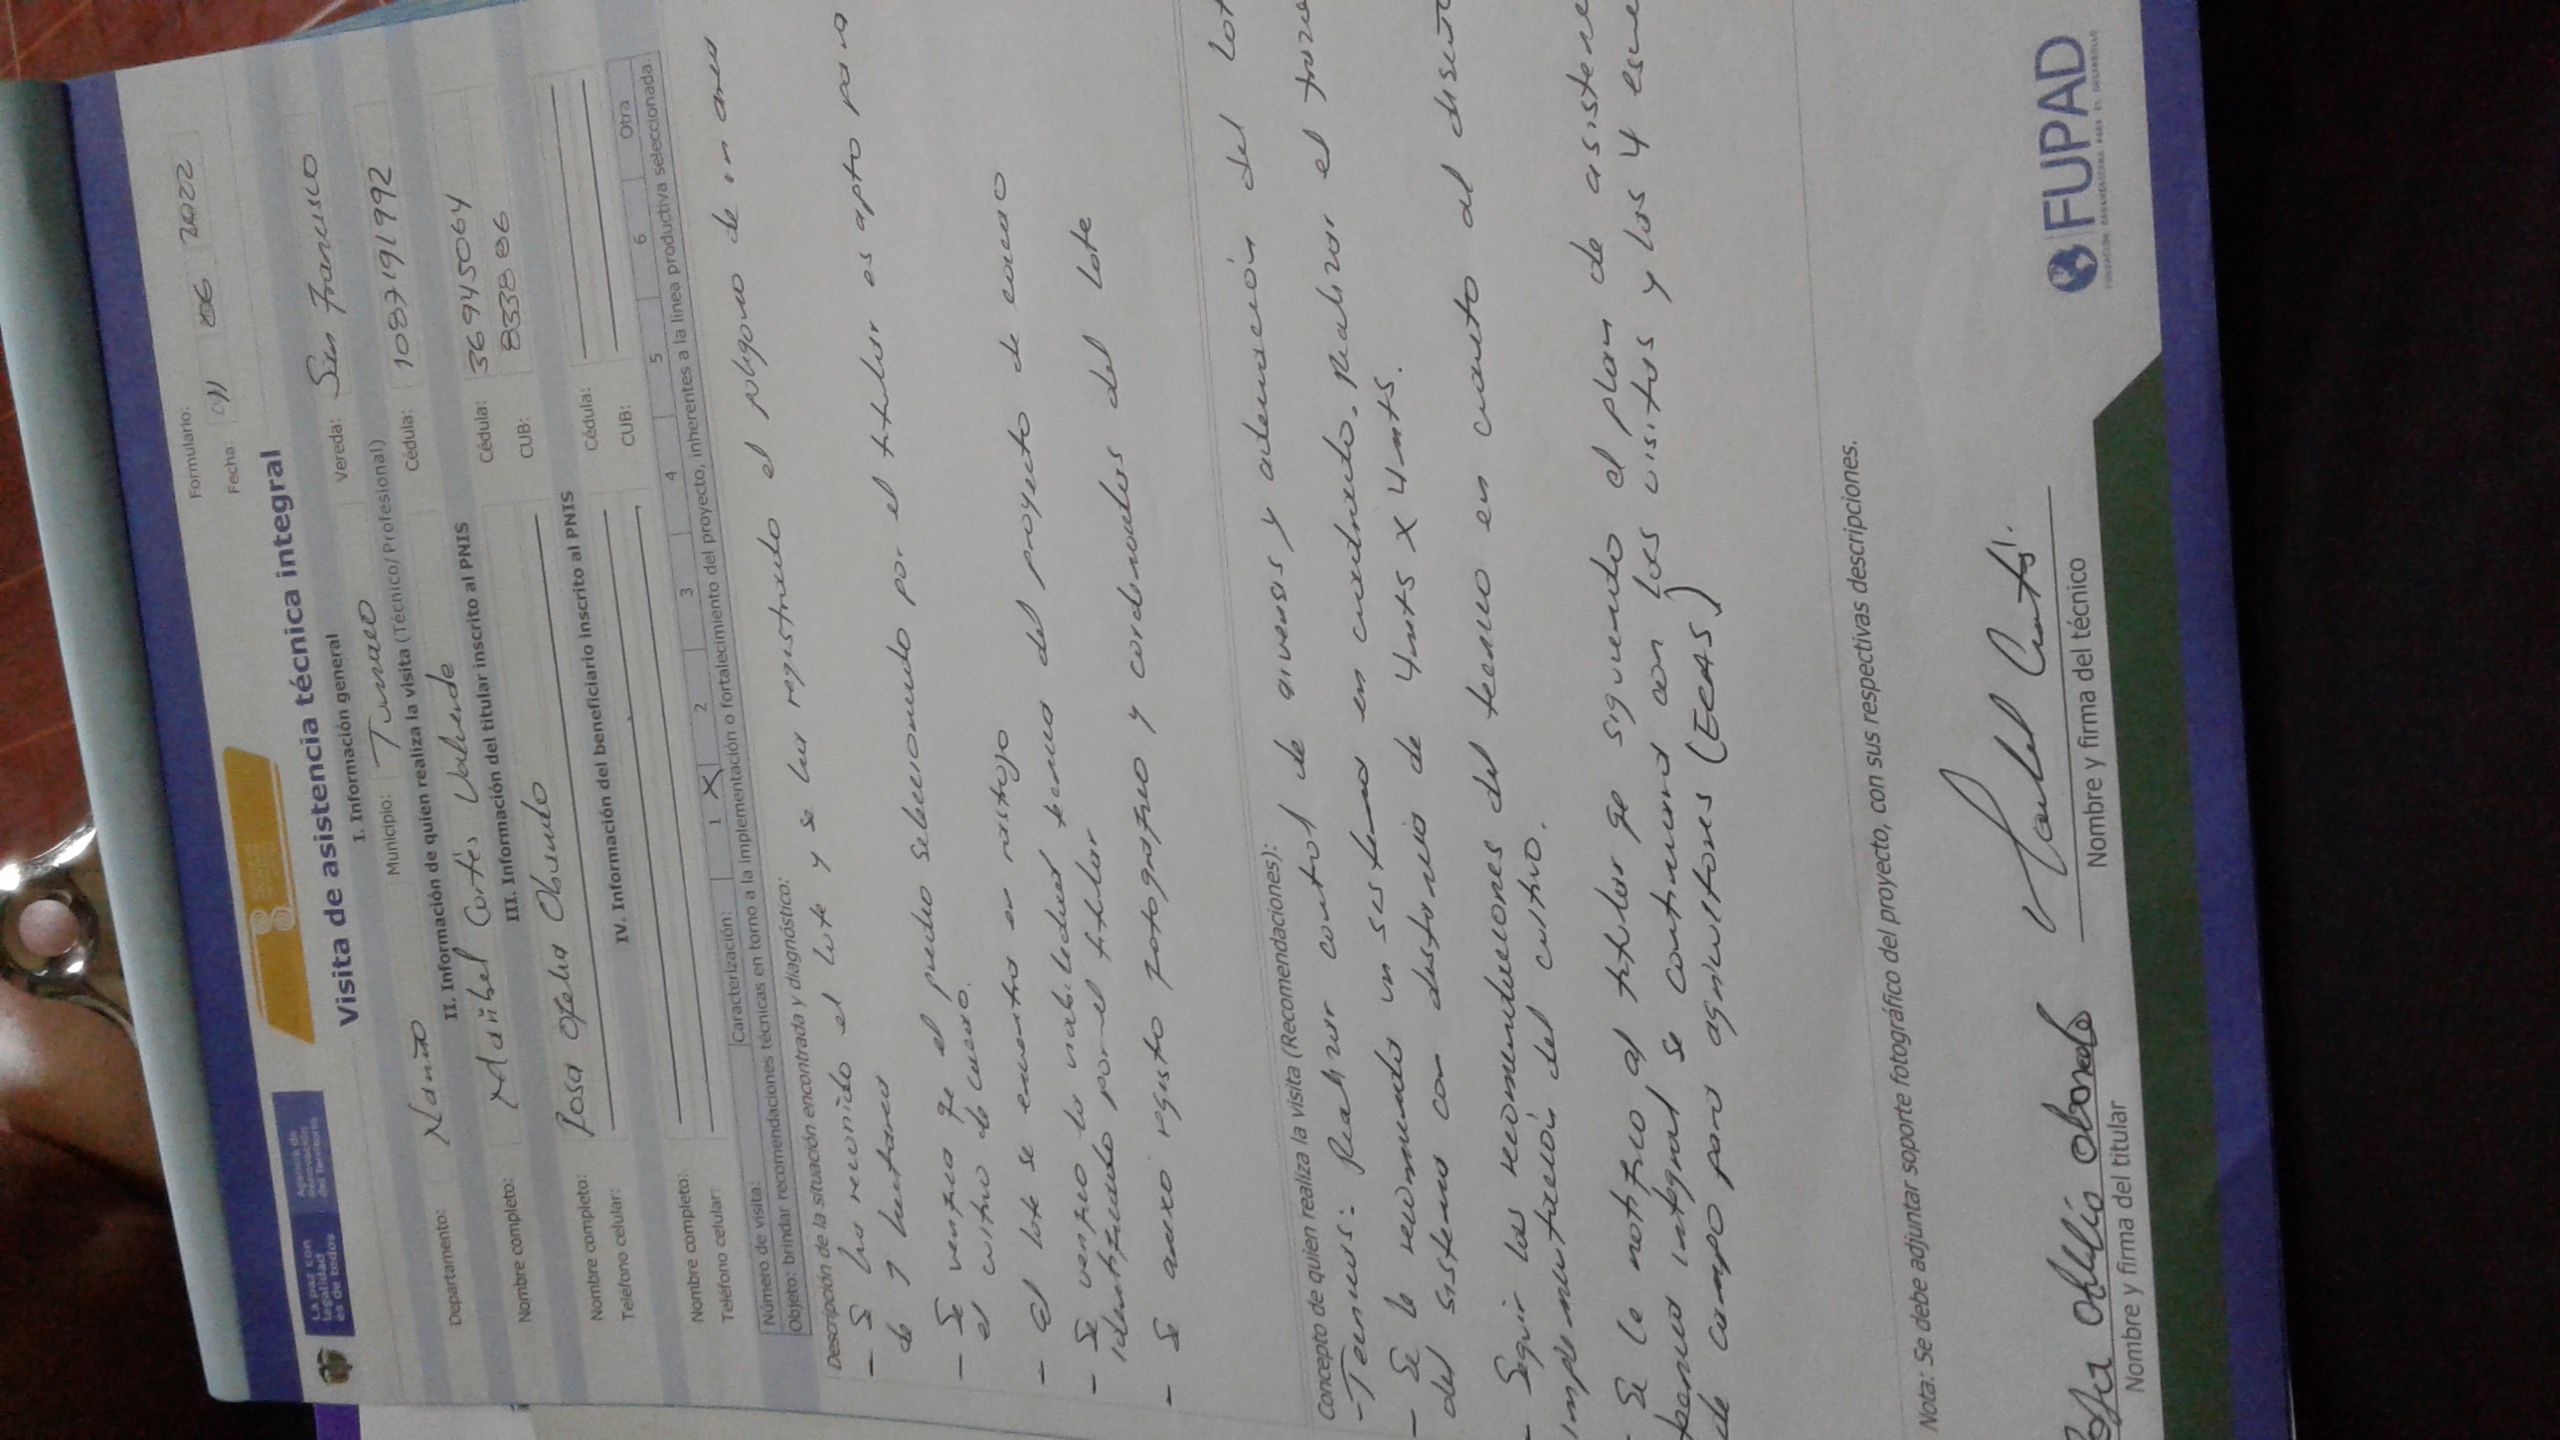 Formulario:
Fecha: 04 06 2022
La paz con
legalidad
es de todos
Agencia de
Renovación
del Territorio
Visita de asistencia técnica integral
I. Información general
Departamento: Nariño Municipio: Tumaco Vereda: San Francisco
II. Información de quien realiza la visita (Técnico/Profesional)
Nombre completo: Cortés Valverde Cédula: 1087191992
III. Información del titular inscrito al PNIS
Nombre completo: Rosa Ofelia Obando Cédula: 36945064
Teléfono celular: CUB: 833886
IV. Información del beneficiario inscrito al PNIS
Nombre completo: Cédula:
Teléfono celular: CUB:
Número de visita: Caracterización: 1 X 2 3 4 5 6 Otra
Objeto: brindar recomendaciones técnicas en torno a la implementación o fortalecimiento del proyecto, inherentes a la línea productiva seleccionada.
Descripción de la situación encontrada y diagnóstico:
- Se ha recorrido el lote y se ha registrado el poligono de un area
de 1 hectarea
- Se verifico qe el predio seleccionado por el titular es apto para
el cultivo de cacao.
- el lote se encuentra en rastrojo
- Se verifico la viabilidad tecnica del proyecto de cacao
identificado por el titular
- Se anexo registo fotografico y cordenadas del lote
Concepto de quien realiza la visita (Recomendaciones):
- Tecnicas: Realizar control de arvenses y adecuación del
- Se le recomienda un sistema en cuadrado. Realizar el
del sistema con distancia de 4mts X 4mts.
- Seguir las recomendaciones del tecnico en cuanto al diseño
implementación del cultivo.
- Se le notifico al titular qe siguiendo el plan de
tecnica integral se continuara con las visitas y las 4
de campo para agricultores (ECAS)
Nota: Se debe adjuntar soporte fotográfico del proyecto, con sus respectivas descripciones.
Ofelia Obando
Nombre y firma del titular
Nombre y firma del técnico
FUPAD
FUNDACIÓN PANAMERICANA PARA EL DESARROLLO